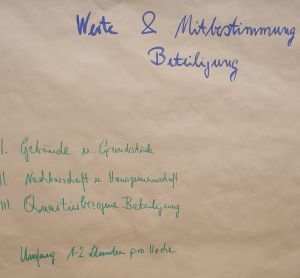 Werte & Mitbestimmung
Beteiligung
I. Gebäude u. Grundstück
II. Nachbarschaft u. Hausgemeinschaft
III. Quartiersbezogene Beteiligung
Umfang 1-2 Stunden pro Woche